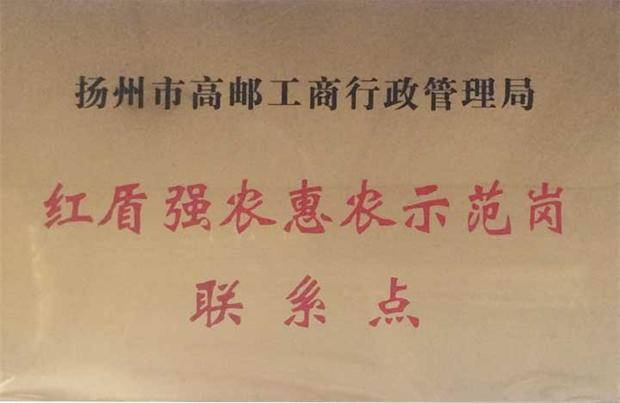 扬州市高邮工商行政管理局
红盾强农惠农示范岗
联系点